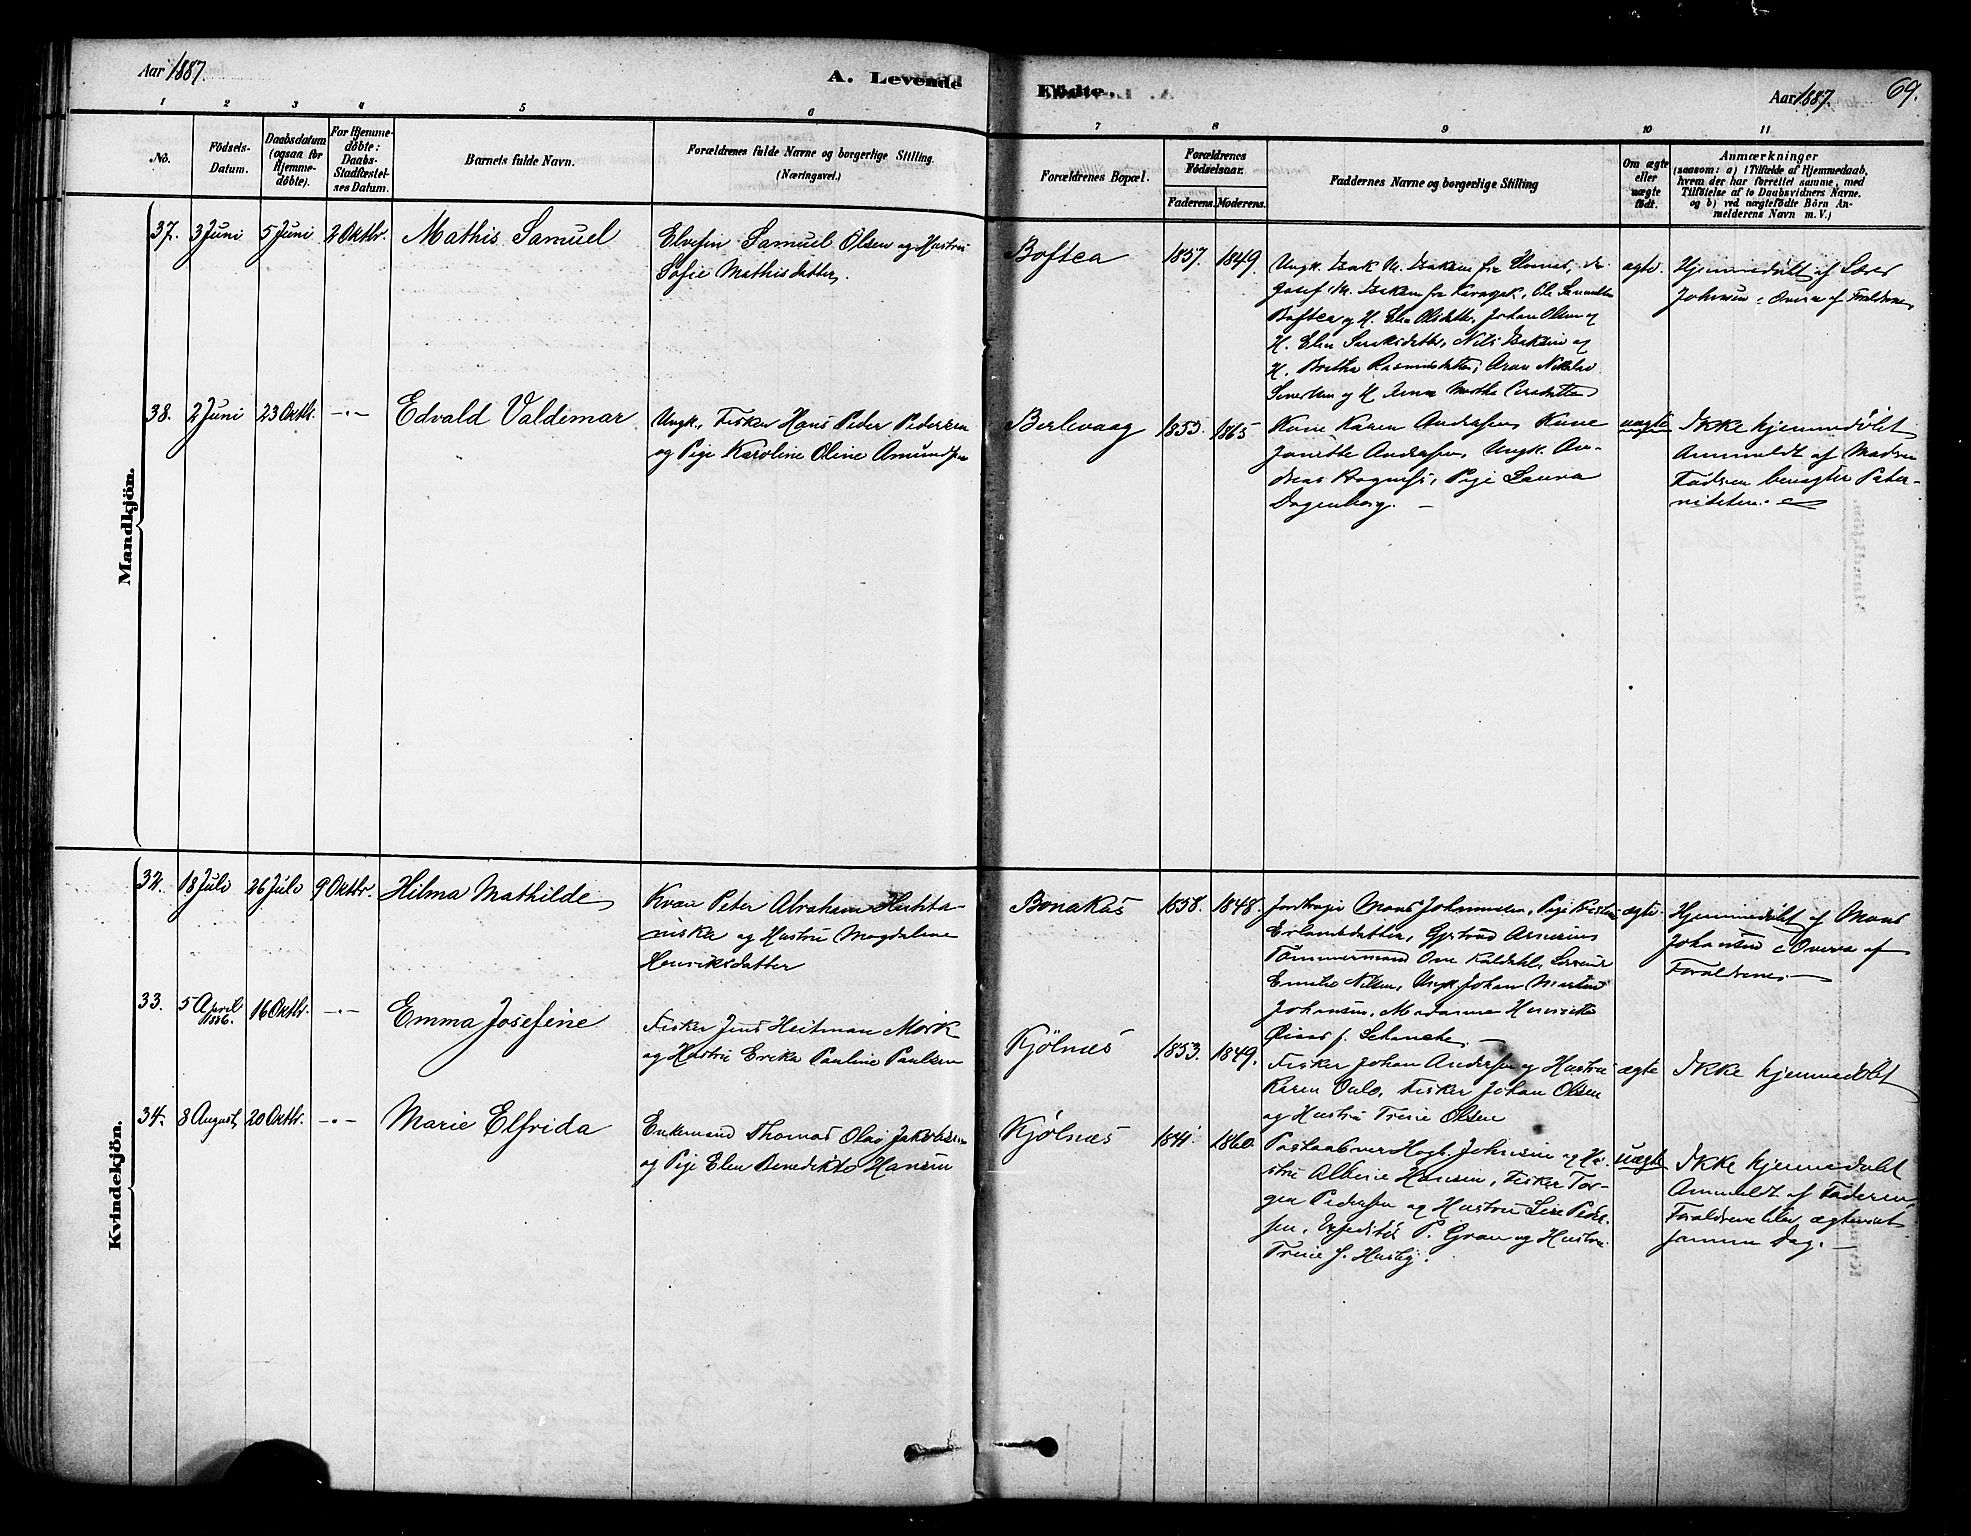 Aar 1887.
A. Levende
Fødte.
Aar 1887.
69.
1 2 3 4 5 6 7 8 9 10 11
No.
Fødsels-
Datum.
Daabsdatum
(ogsaa for
Hjemme-
døbte).
For Hjemme-
døbte:
Daabs-
Stadfæstel-
ses Datum.
Barnets fulde Navn.
Forældrenes fulde Navne og borgerlige Stilling.
(Næringsvei.)
Forældrenes Bopæl.
Forældrenes
Fødselsaar.
Faderens. Moderens.
Faddernes Navne og borgerlige Stilling
Om ægte
eller
uægte
født.
Anmærkninger
(saasom: a) i Tilfælde af Hjemmedaab,
hvem der har forrettet samme, med
Tilføielse af to Daabsvidners Navne.
og b) ved uægtefødte Börn An-
melderens Navn m. V.)
Mandkjön.
37. 3 Juni 5 Juni 2 Oktbr. Mathis Samuel
Elvefin Samuel Olsen og Hustru
Sofie Mathisdatter.
Boftca 1857. 1849.
Ungk. Isak M. Isaksen fra
Josef M. Isaksen fra Karasjok, Ole Samuelsen
Boftca og H. Elen Olsdatter, Johan Olsen og
H. Elen Nils Isaksen og
H. Brettha Rasmusdatter,
og H Anna
ægte.
Hjemmedøbt af Lærer
Johnsen i Overv. af Forældrene
38. 2 Juni 23 Oktb. -"- Edvald Valdemar
Ungk., Fisker Hans Peder Pedersen
og Pige Karoline Oline Amundsen
Berlevaag 1853. 1865
Kone Karen Andersen, Kone
Janette Andersen, Ungk. An-
dreas Pige Laura
Dagenborg. -
uægte
Ikke hjemmedøbt
Anmeldt af Modren
Fadren benægter Pater-
niteten.
Kvindekjön.
32. 18 Juli 26 Juli 9 Oktbr. Hilma Mathilde
Kvæn Peter Abraham Huhta-
niska og Hustru Magdalene
Henriksdatter
Bonakas 1858. 1848.
Jordbruger Mons Johannesen, Pige
Erlandsdatter, Gjertrud
Tømmermand Ove Kaldahl,
Emilie Nilsen, Ungk. Johan Martin
Johansen, Madamme Henrikke
f. Schanche. -
ægte
Hjemmedøbt af Mons
Johansen i Overv. af
Forældrene. -
33. 5 April 1886. 16 Oktbr. -"- Emma Josefine
Fisker Jens Heitman Mørk
og Hustru Erika Pauline Paulsen
Kjølnæs 1853. 1849.
Fisker Johan Andersen og Hustru
Karen Fisker Johan Olsen
og Hustru Trine Olsen
ægte
Ikke hjemmedøbt
34. 8 August, 20 Oktbr. -"- Marie Elfrida
Enkemand Thomas Olai Jakobsen
og Pige Elen Benedikte Hansen
Kjølnæs 1841. 1860.
Postaabner Hagb. Johnsen og Hu-
stru Albine Hansen, Fisker Tor-
ger Pedersen og Hustru Lise Peder-
sen, Expeditør P. Gran og Hustru
Trine f. Husby.
uægte
Ikke hjemmedøbt
Anmeldt af Faderen,
Forældrene blev ægteviet
samme Dag. -